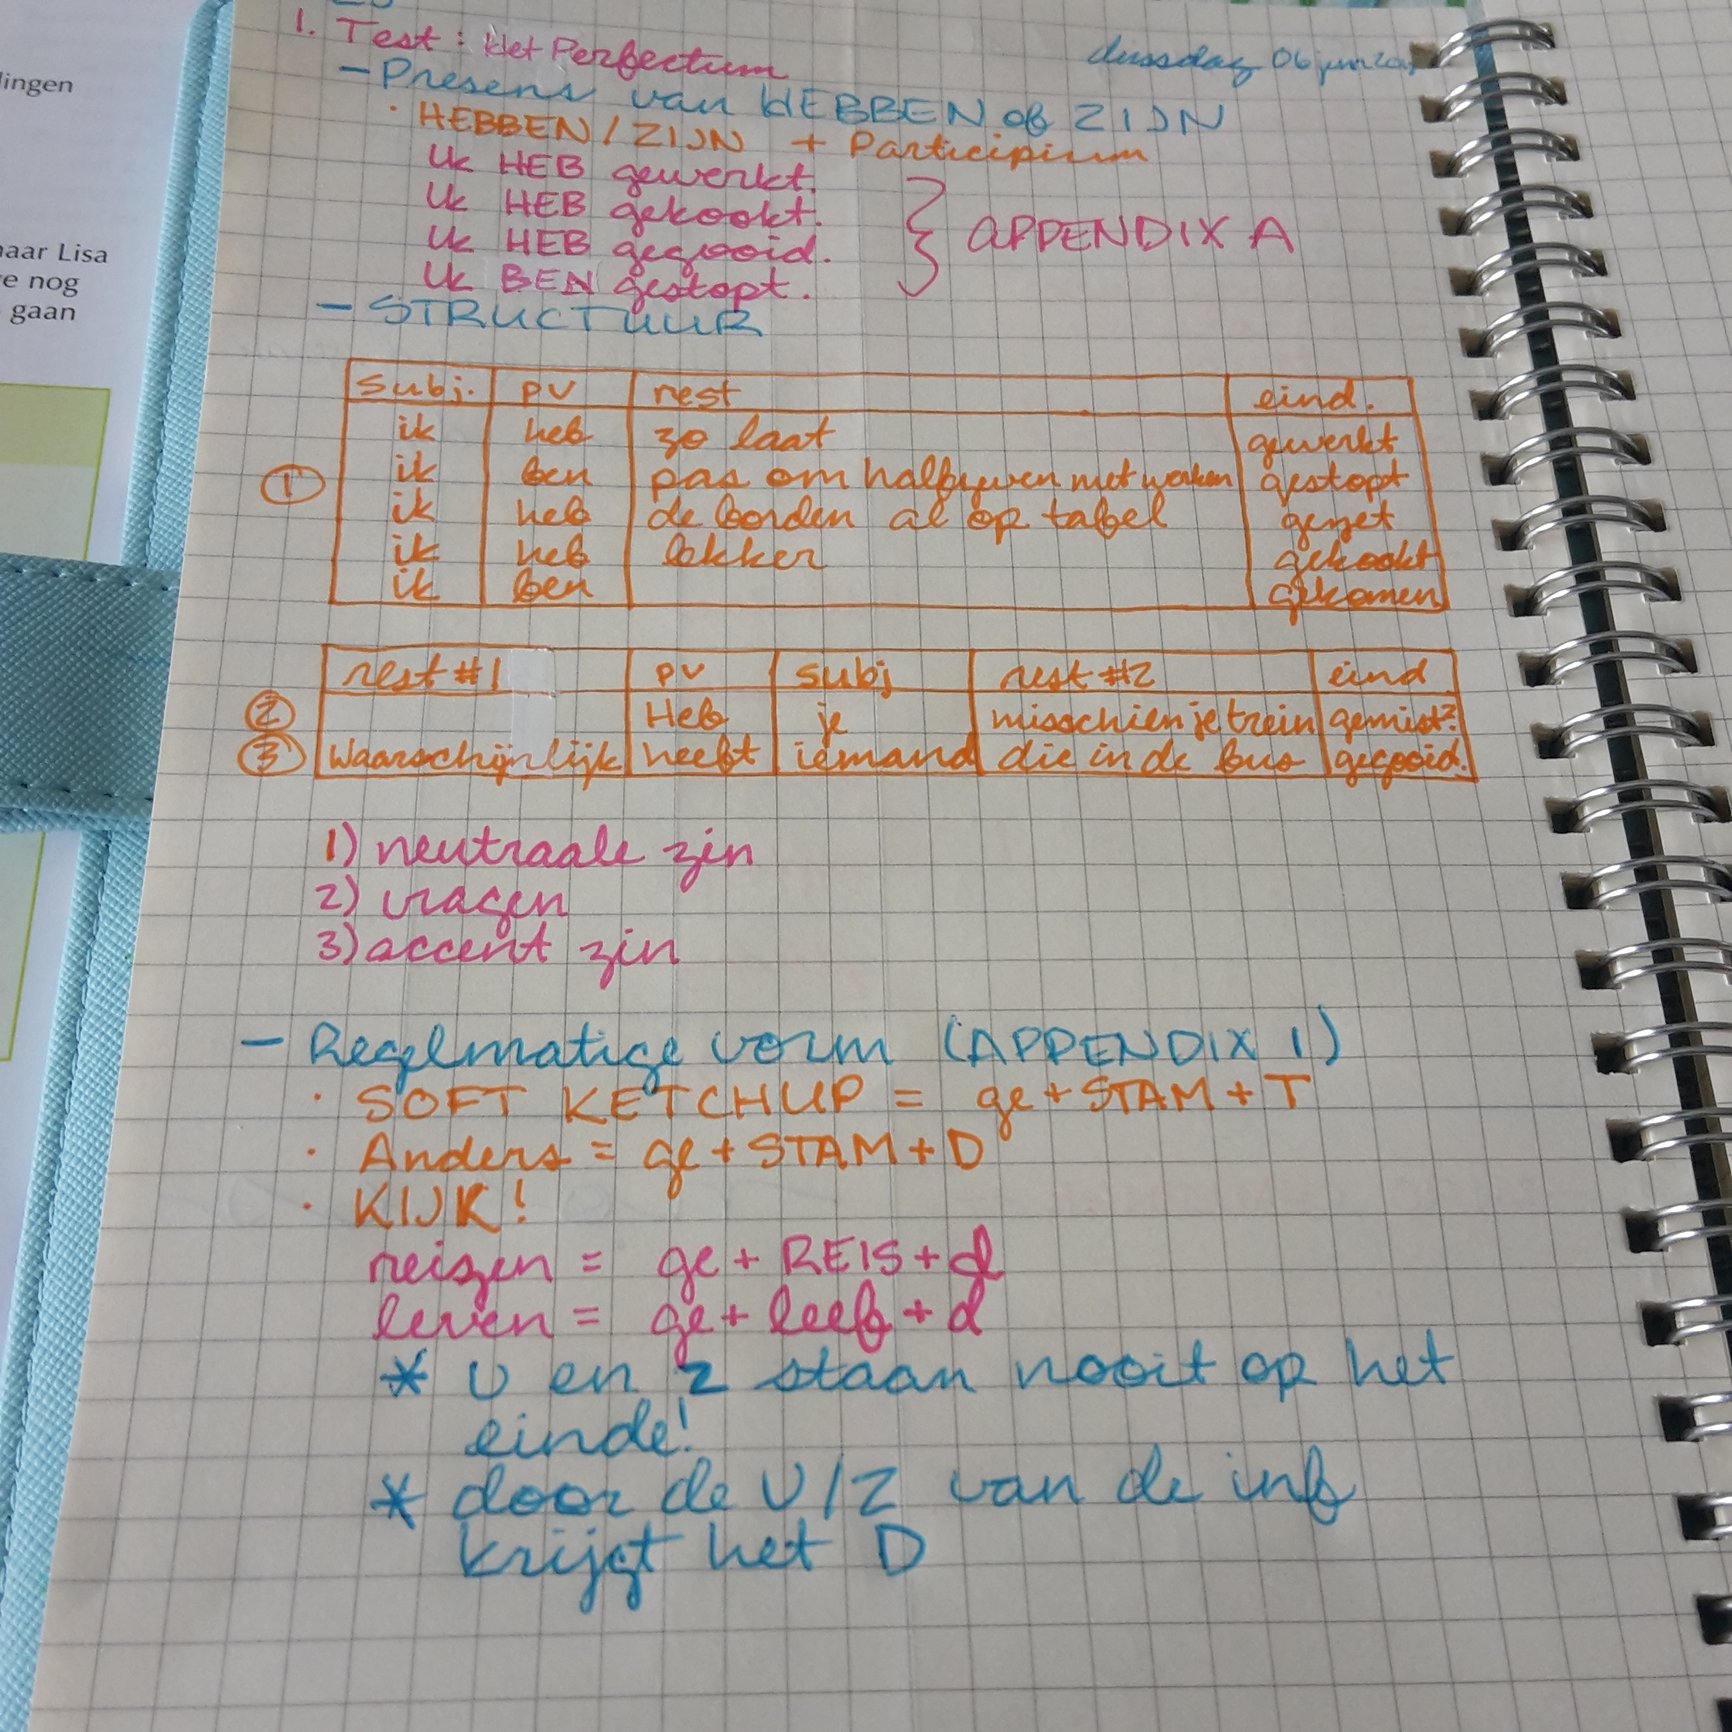 lingen
naar Lisa
e nog
gaan
1. Test: Het Perfectum
dinsdag 06 jun
- Presens van HEBBEN of ZIJN
· HEBBEN/ZIJN + Participium
Ik HEB gewerkt.
Ik HEB gekookt.
Ik HEB gegooid.
Ik BEN gestopt.
} APPENDIX A
- STRUCTUUR
subj. pv rest eind.
ik heb zo laat gewerkt
① ik ben pas om halfzeven met werken gestopt
ik heb de borden al op tafel gezet
ik heb lekker gekookt
ik ben gekomen
rest #1 pv subj rest #2 eind
② Heb je misschien je trein gemist?
③ Waarschijnlijk heeft iemand die in de bus gegooid.
1) neutraale zin
2) vragen
3) accent zin
- Regelmatige vorm (APPENDIX 1)
· SOFT KETCHUP = ge + STAM + T
· Anders = ge + STAM + D
· KIJK!
reizen = ge + REIS + d
leven = ge + leef + d
* v en z staan nooit op het
einde!
* door de V/Z van de inf
krijgt het D